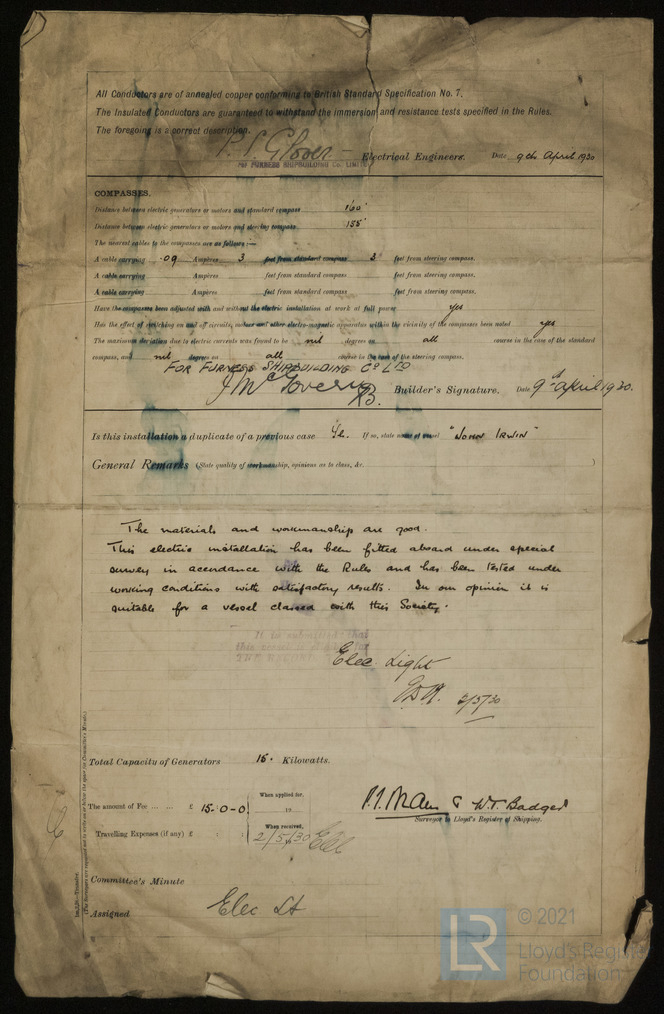 All Conductors are of annealed copper conforming to British Standard Specification No. 7.
The Insulated Conductors are guaranteed to withstand the immersion and resistance tests specified in the Rules.
The foregoing is a correct description.
Glover Electrical Engineers. Date 9th April 1930
FURNESS SHIPBUILDING Co. LIMITED
COMPASSES.
Distance between electric generators or motors and standard compass 160'
Distance between electric generators or motors and steering compass 155'
The nearest cables to the compasses are as follows:—
A cable carrying .09 Ampères 3 feet from standard compass 3 feet from steering compass.
A cable carrying Ampères feet from standard compass feet from steering compass.
A cable carrying Ampères feet from standard compass feet from steering compass.
Have the compasses been adjusted with and without the electric installation at work at full power yes
Has the effect of switching on and off circuits, motors and other electro-magnetic apparatus within the vicinity of the compasses been noted yes
The maximum deviation due to electric currents was found to be nil degrees on all course in the case of the standard
compass, and nil degrees on all course in the case of the steering compass.
FOR FURNESS SHIPBUILDING Co LTD
J McGovern Builder's Signature. Date 9th April 1930.
Is this installation a duplicate of a previous case If so, state name of vessel "JOHN IRWIN"
General Remarks (State quality of workmanship, opinions as to class, &c.
The materials and workmanship are good.
This electric installation has been fitted aboard under special
survey in accordance with the Rules and has been tested under
working conditions with satisfactory results. In our opinion it is
suitable for a vessel classed with this Society.
It is submitted that
this vessel is eligible for
THE RECORD
Elec Light
2/5/30
Total Capacity of Generators 15. Kilowatts.
The amount of Fee ... ... £ 15:0-0 When applied for,
Travelling Expenses (if any) £ : : When received,
2/5/30
& W.T. Badger
Surveyor to Lloyd's Register of Shipping.
Committee's Minute
Assigned Elec Lt
© 2021
Lloyd's Register
Foundation
LR